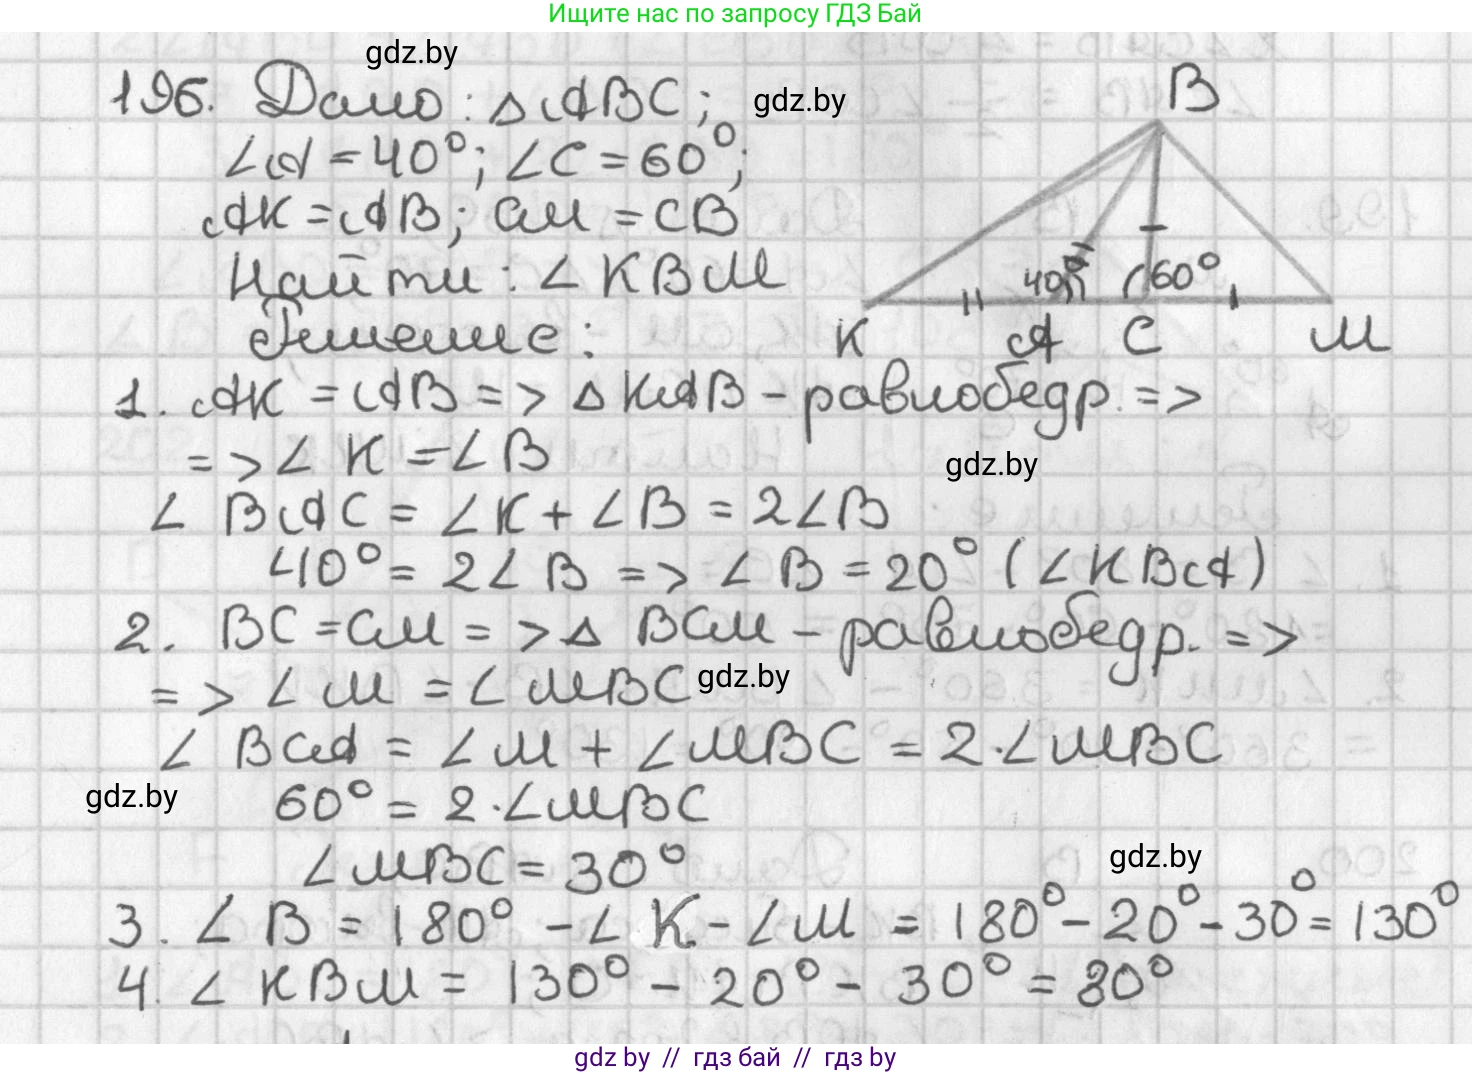 Ищите нас по запросу ГДЗ Бай
gdz.by
196. Дано: △ABC;
gdz.by
∠A = 40°; ∠C = 60°;
AK = AB; CM = CB
Найти: ∠KBM
Решение:
B
40°
60°
K A C M
1. AK = AB => △KAB - равнобедр. =>
=> ∠K = ∠B
gdz.by
∠BAC = ∠K + ∠B = 2∠B
40° = 2∠B => ∠B = 20° (∠KBA)
2. BC = CM => △BCM - равнобедр. =>
=> ∠M = ∠MBC
gdz.by
∠BCA = ∠M + ∠MBC = 2·∠MBC
gdz.by
60° = 2·∠MBC
∠MBC = 30°
gdz.by
3. ∠B = 180° - ∠K - ∠M = 180° - 20° - 30° = 130°
4. ∠KBM = 130° - 20° - 30° = 80°
gdz by // гдз бай // гдз by